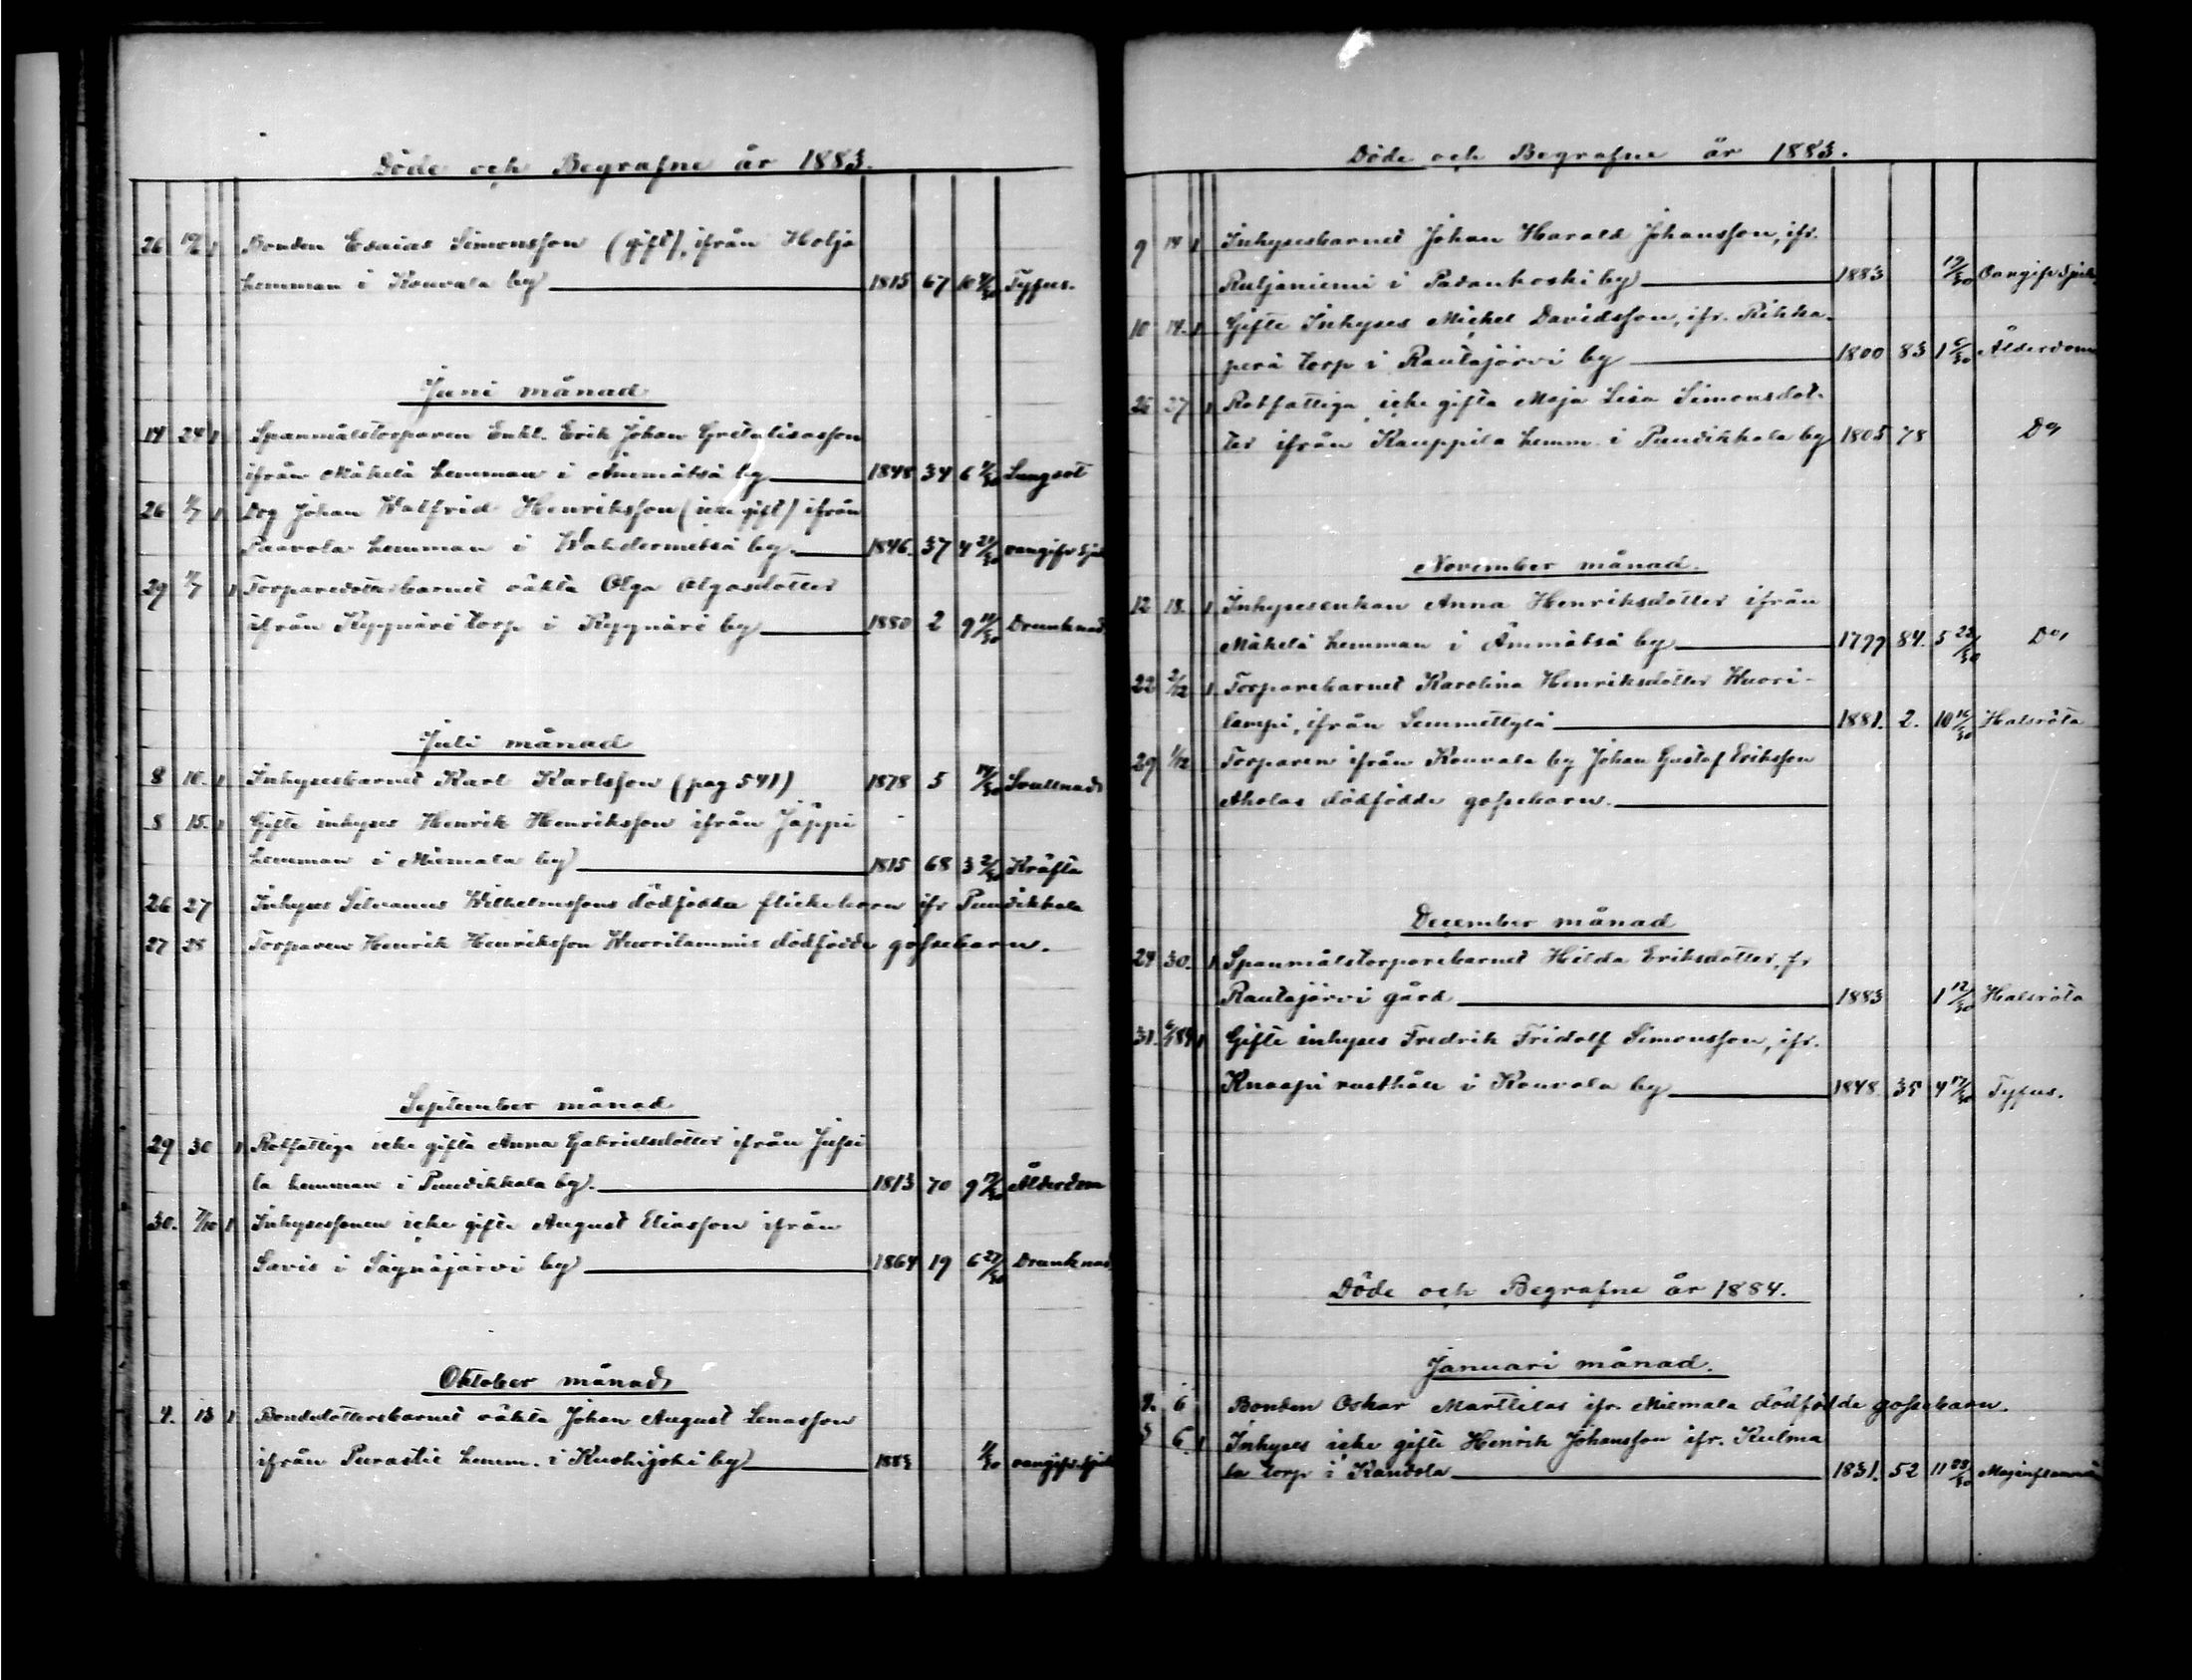 Döde och Begrafne år 1883.
26 Bonden Esaias Simonsson (gift), ifrån Holja
hemman i Kouvala by 1815 67 10 Tyfus.
Juni månad
14 24 1 Spanmålstorparen Enkl. Erik Johan Gretalisasson
ifrån Mäkelä hemman i Ämmätsä by 1848 34 6 Lungsot
26 1/7 1 Drg Johan Walfrid Henriksson (icke gift) ifrån
Paavola hemman i Wahdermetsä by. 1846. 37 4 21/30 oangifv. sjuk
29 1/7 1 Torparedotterbarnet oäkta Olga Olgasdotter
ifrån Kyynäri torp i Kyynärö by 1880 2 9 11/30 Drunknad.
Juli månad
8 10. 1 Inhysesbarnet Karl Karlsson (pag 541) 1878 5 14/30 Svullnad
8 15. 1 Gifte inhyses Henrik Henriksson ifrån Jäppi
hemman i Miemala by 1815 68 3 2/30 Kräfta
26 27 Inhyses Silvanus Wilhelmssons dödfödda flickebarn ifr Puudikkala
27 28 Torparen Henrik Henriksson Wuorilammis dödfödde gossebarn.
September månad
29 30 1 Rotfattiga icke gifta Anna Gabrielsdotter ifrån Jussi
la hemman i Puudikkala by. 1813 70 9 Ålderdom
30. 7/10 1 Inhysessonen icke gifte August Eliasson ifrån
Savis i Säynäjärvi by 1864 19 6 27/30 Drunknad.
Oktober månad
4. 13 1 Bondedottersbarnet oäkta Johan August Lenasson
ifrån Purastie hemm. i Kuohijoki by 1883 oangifv. sjuk
Döde och Begrafne år 1883.
9 14 1 Inhysesbarnet Johan Harald Johansson, ifr.
Rutjaniemi i Padankoski by 1883 19/30 Oangifv. sjuk
10 14. 1 Gifte Inhyses Mickel Davidsson, ifr. Rikka-
perä torp i Rautajärvi by 1800 83 1 6/30 Ålderdom
26 27 1 Rotfattiga icke gifta Maja Lisa Simonsdot-
ter ifrån Kauppila hemm. i Puudikkala by 1805 78 Do,
November månad.
12 18. 1 Inhysesenkan Anna Henriksdotter ifrån
Mäkelä hemman i Ämmätsä by 1799 84. 5 22/30 Do,
22 2/12 1 Torparebarnet Karolina Henriksdotter Wuori-
lampi, ifrån Lemmettylä 1881. 2. 10 16/30 Halsröta
29 1/12 Torparen ifrån Kouvala by Johan Gustaf Eriksson
Aholas dödfödde gossebarn.
December månad
24 30. 1 Spanmålstorparebarnet Hilda Eriksdotter, fr
Rautajärvi gård 1883 1 12/30 Halsröta
31. 6/1 84 1 Gifte inhyses Fredrik Fridolf Simonsson, ifr.
Knaapi rusthåll i Kouvala by 1848. 35 4 17/30 Tyfus.
Döde och Begrafne år 1884.
Januari månad.
4. 6 Bonden Oskar Marttilas ifr. Miemala dödfödde gossebarn.
5 6 1 Inhyses icke gifte Henrik Johansson ifr. Kulma
la torp i Kandola 1831. 52 11 23/30